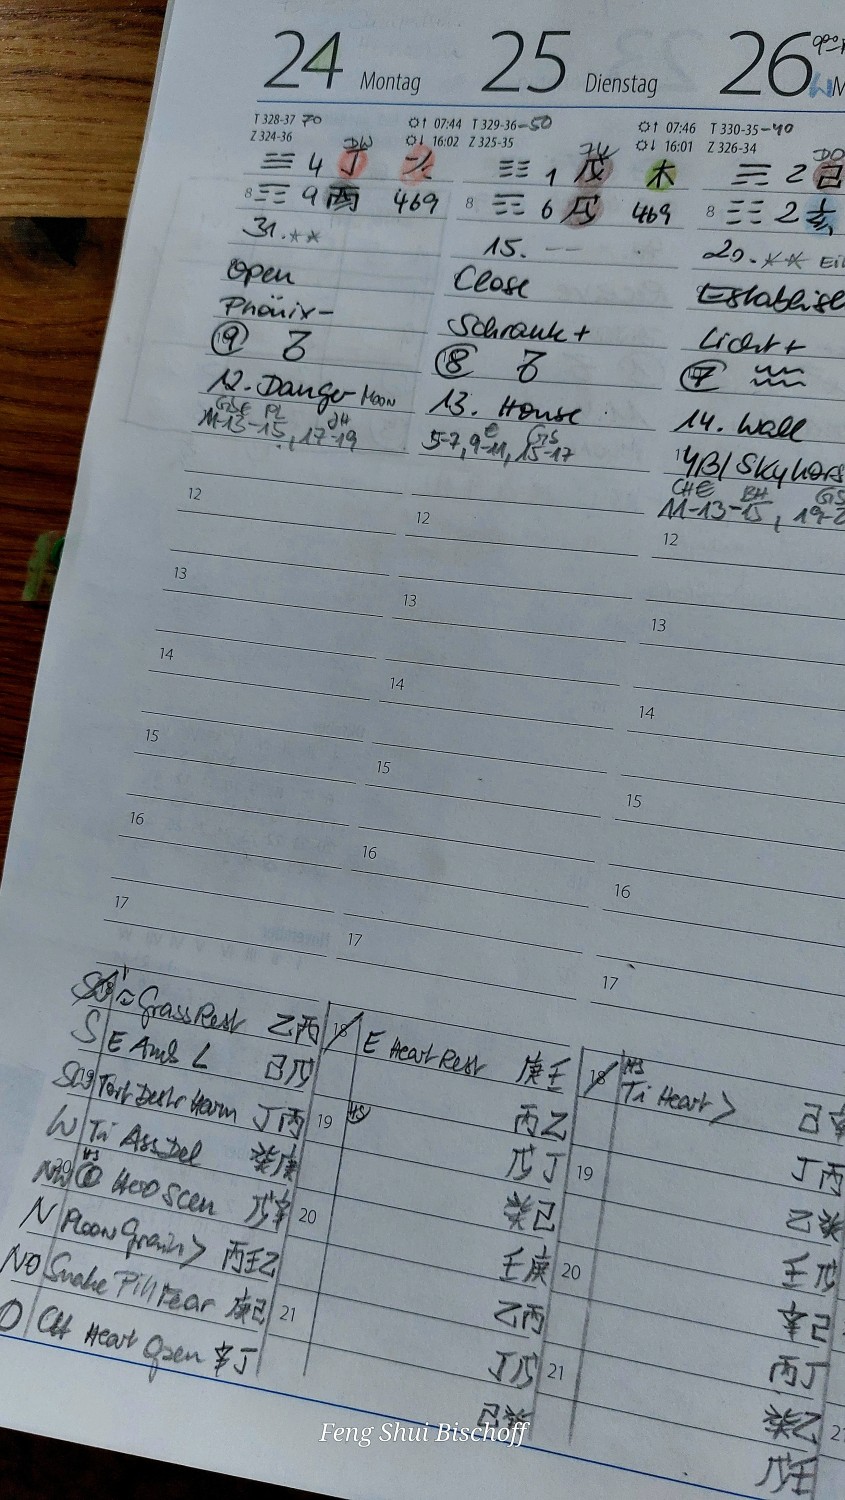 24 Montag
T 328-37 70
Z 324-36
07:44
16:02
4 丁
8 9 丙 469
31.**
Open
Phönix-
9
12. Danger Moon
11-13-15, 17-19
12
13
14
15
16
17
25 Dienstag
T 329-36-50
Z 325-35
07:46
16:01
1 戊 木
8 6 戊 469
15. --
Close
Schrank +
8
13. House
5-7, 9-11, 15-17
12
13
14
15
16
17
26
T 330-35-40
Z 326-34
2 己
8 2
20. **
Licht +
7
14. Wall
11-13-15,
12
13
14
15
16
17
Grass Rest 乙丙
S E 己戊
丁丙
W Ti Ass Del 癸庚
戊辛 20
N Moon Grain > 丙壬乙
NO Snake Pill Fear 庚己 21
O CH Heart Open 辛丁
18 E Heart Rest 庚壬
19 HS 丙乙
戊丁
癸己
壬庚
乙丙
丁戊
己癸
18 HS
Ti Heart > 己辛
19 丁丙
乙癸
20 壬戊
辛己
21 丙丁
癸乙
戊壬
Feng Shui Bischoff